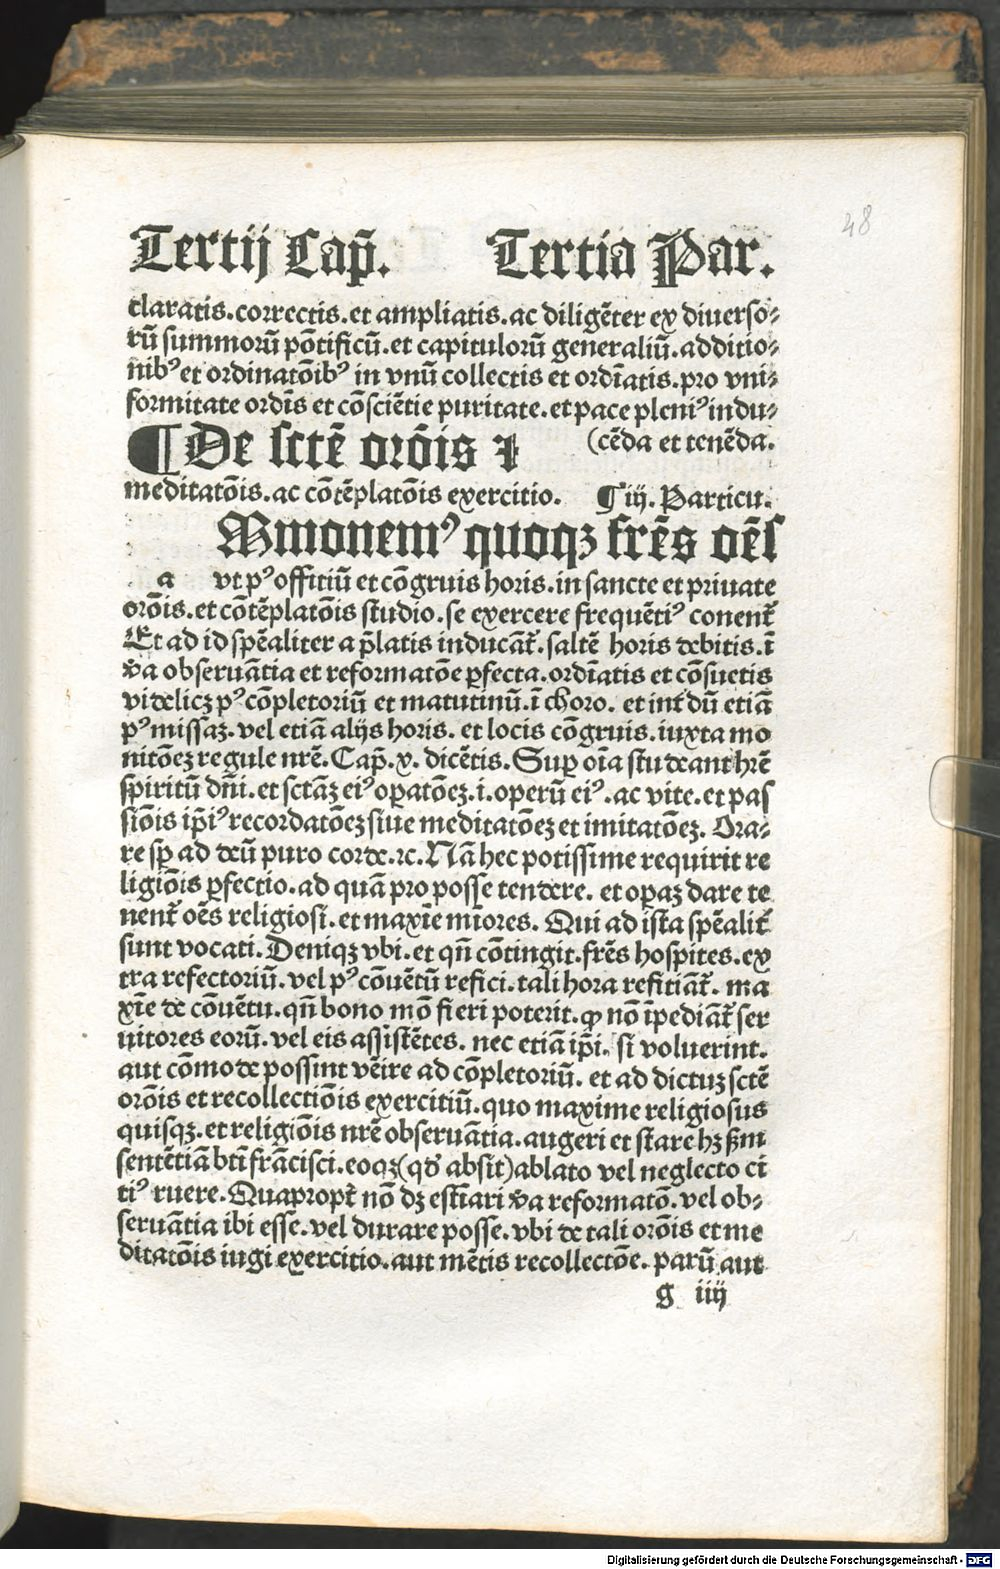 48
Tertij Cap̃. Tertia Par.
claratis.correctis.et ampliatis.ac diligẽter ex diuerso⸗
rũ summorũ põtificũ.et capitulorũ generaliũ.additio⸗
nibꝰ et ordinatõibꝰ in vnũ collectis et ordĩatis.pro vni⸗
formitate ordĩs et cõsciẽtie puritate.et pace pleniꝰ indu⸗
(cẽda et tenẽda.
¶De sctẽ orõis ⁊
meditatõis.ac cõtẽplatõis exercitio. ¶iij. Particu.
Mmonemꝰ quoqꝫ frẽs oẽs
a vt pꝰ offitiũ et cõgruis horis.in sancte et priuate
orõis.et cõtẽplatõis studio.se exercere frequẽtiꝰ conent᷑
Et ad id spẽaliter a p̃latis inducãt᷑.saltẽ horis debitis.ĩ
ꝟa obseruãtia et reformatõe ꝑfecta.ordĩatis et cõsuetis
videlicꝫ pꝰ cõpletoriũ et matutinũ.ĩ choro. et int᷑ dũ etiã
pꝰ missaꝫ.vel etiã alijs horis. et locis cõgruis.iuxta mo
nitõeꝫ regule nrẽ.Cap̃.x. dicẽtis.Suꝑ oĩa studeant hrẽ
spiritũ dñi.et sctãꝫ eiꝰ oꝑatõeꝫ.i.operũ eiꝰ.ac vite.et pas
siõis ip̃iꝰ recordatõeꝫ siue meditatõeꝫ et imitatõeꝫ. Ora⸗
re sp̃ ad deũ puro corde.⁊c.Nã hec potissime requirit re
ligiõis ꝑfectio.ad quã pro posse tendere. et oꝑaꝫ dare te
nent᷑ oẽs religiosi.et maxĩe mĩores. Qui ad ista spẽalit᷑
sunt vocati.Deniqꝫ vbi.et qñ cõtingit.frẽs hospites.ex
tra refectoriũ.vel pꝰ cõuẽtũ refici.tali hora refitiãt᷑. ma
xĩe de cõuẽtu.qñ bono mõ fieri poterit.ꝙ nõ ĩpediãt᷑ ser
uitores eorũ.vel eis assistẽtes. nec etiã ip̃i. si voluerint.
aut cõmode possint vẽire ad cõpletoriũ. et ad dictuꝫ sctẽ
orõis et recollectiõis exercitiũ.quo maxime religiosus
quisqꝫ.et religiõis nrẽ obseruãtia.augeri et stare hꝫ ẜm
sentẽtiã btĩ frãcisci.eoqꝫ(qđ absit)ablato vel neglecto ci
tiꝰ ruere.Quapropt᷑ nõ dꝫ estĩari ꝟa reformatõ.vel ob⸗
seruãtia ibi esse.vel durare posse.vbi de tali orõis et me
ditatõis iugi exercitio.aut mẽtis recollectõe.parũ aut
g iiij
Digitalisierung gefördert durch die Deutsche Forschungsgemeinschaft - DFG